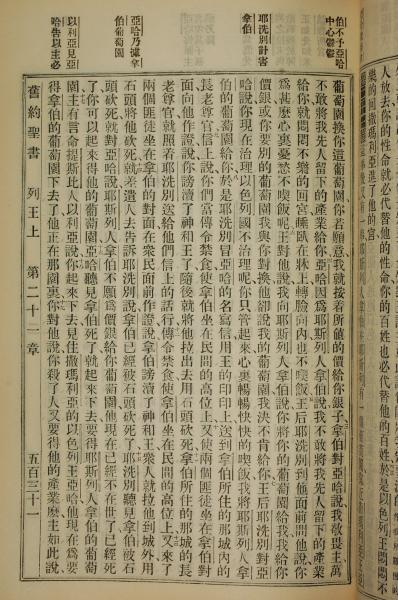 人放去你的性命就必代替他的性命你的百姓也必代替他的百姓於是以色列王悶悶不
樂的回撒瑪利亞進了他的宮
伯不予亞哈
中心鬱鬱
耶洗別計害
拿伯
亞哈乃據拿
伯葡萄園
以利亞見亞
哈告以主必
葡萄園換你這葡萄園你若願意我就按着所値的價給你銀子拿伯對亞哈說我敬畏主萬
不敢將我先人留下的產業給你亞哈因爲耶斯列人拿伯說我不敢將我先人留下的產業
給你就悶悶不樂的回宮睡臥在牀上轉臉向內也不喫飯王后耶洗別到他面前問他說你
爲甚麽心裏憂愁不喫飯呢王對他說我向耶斯列人拿伯說你將你的葡萄園給我我給你
價銀或你要別的葡萄園我與你對換他卻說我的葡萄園我決不肯給你王后耶洗別對亞
哈說你現在治理以色列國不治理呢你只管起來心裏暢暢快快的喫飯我將耶斯列人拿
伯的葡萄園給你於是耶洗別冒亞哈的名寫信用王的印印上送到拿伯所住的城內的
長老尊官信上說你們當傳令禁食使拿伯坐在民間的高位上又使兩個匪徒坐在拿伯對
面向他作證說你謗瀆了神和王了隨後就將他拉出去用石頭砍死拿伯所住的那城的長
老尊官就照着耶洗別送給他們信上的話行傳令禁食使拿伯坐在民間的高位上又來了
兩個匪徒坐在拿伯的對面在衆民面前作證說拿伯謗瀆了神和王衆人就拉他到城外用
石頭將他砍死就差遣人去告訴耶洗別說拿伯已經被石頭砍死了耶洗別聽見拿伯被石
頭砍死就對亞哈說耶斯列人拿伯不願爲價銀給你葡萄園他現在已經不在世了已經死
了你可以起來得他的葡萄園亞哈聽見拿伯死了就起來下去要得耶斯列人拿伯的葡萄
園主有言命提斯比人以利亞說你起來下去見住撒瑪利亞的以色列王亞哈他現在爲要
得拿伯的葡萄園下去了他正在那園裏你對他說你殺了人又要得他的產業麽主如此說
舊約聖書 列王上 第二十一章 五百三十一